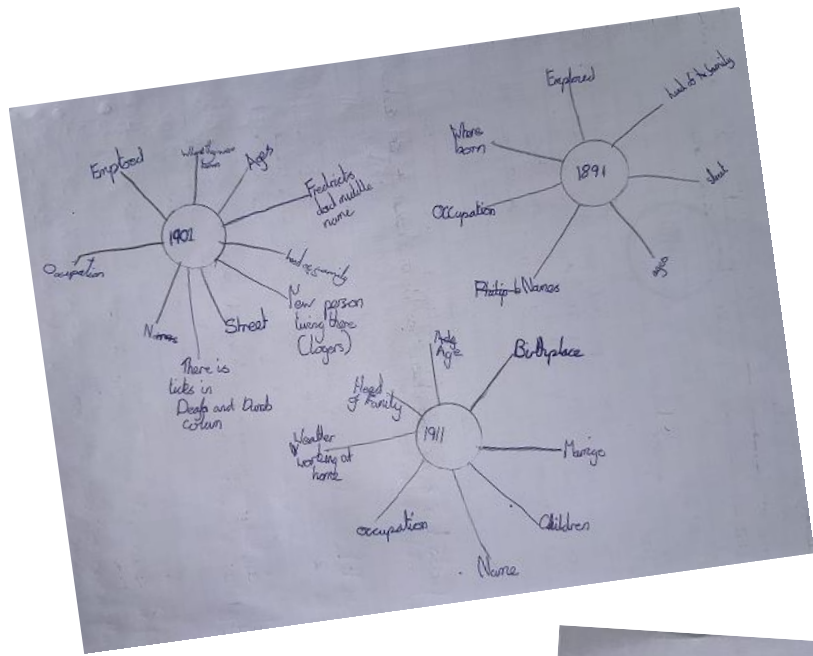 1901
Emploed
Where they were
born
Ages
Fredricks
dad middle
name
head of family
New person
living there
(logers)
Street
There is
ticks in
Deafa and Dumb
colum
Names
Ocupation
1891
Emploied
head of the family
street
ages
Philip b Names
Occupation
Where
born
1911
Ade
Age
Birthplace
Marrige
Children
Name
occupation
Weather
working at
home
Head
of Family